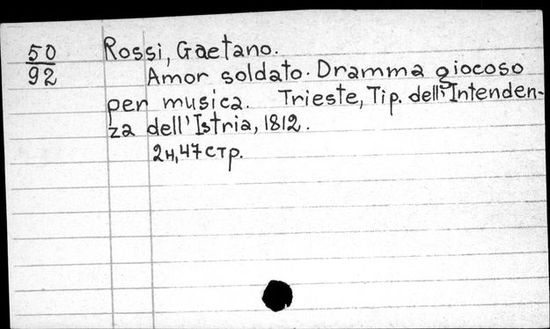 50
92
Rossi, Gaetano.
Amor soldato. Dramma giocoso
per musica. Trieste, Tip. dell'Intenden-
za dell'Istria, 1812.
2н, 47 стр.